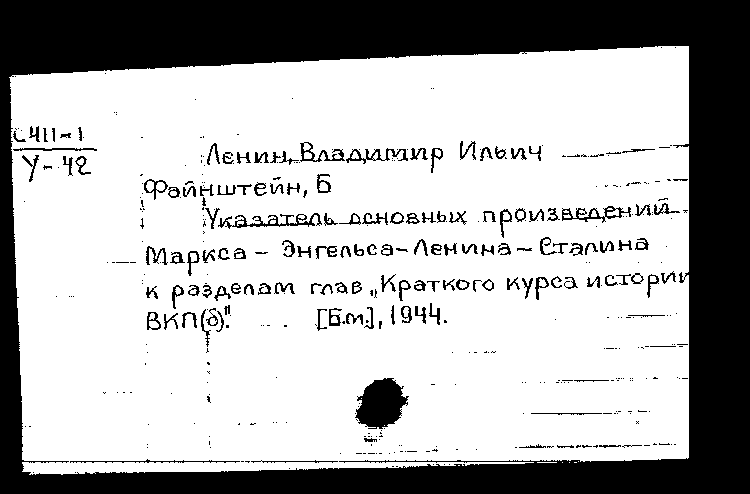 С411-1
У-42
Ленин, Владимир Ильич
Файнштейн, Б
Указатель основных произведений
Маркса - Энгельса - Ленина - Сталина
к разделам глав „Краткого курса истории
ВКП(б)". [Б.м.], 1944.